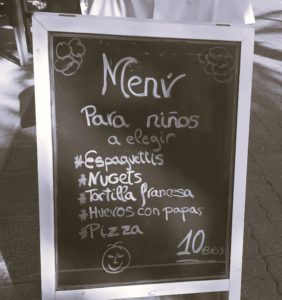 Menú
Para niños
a elegir
*Espaguettis
*Nugets
*Tortilla francesa
*Huevos con papas
*Pizza
10 euros